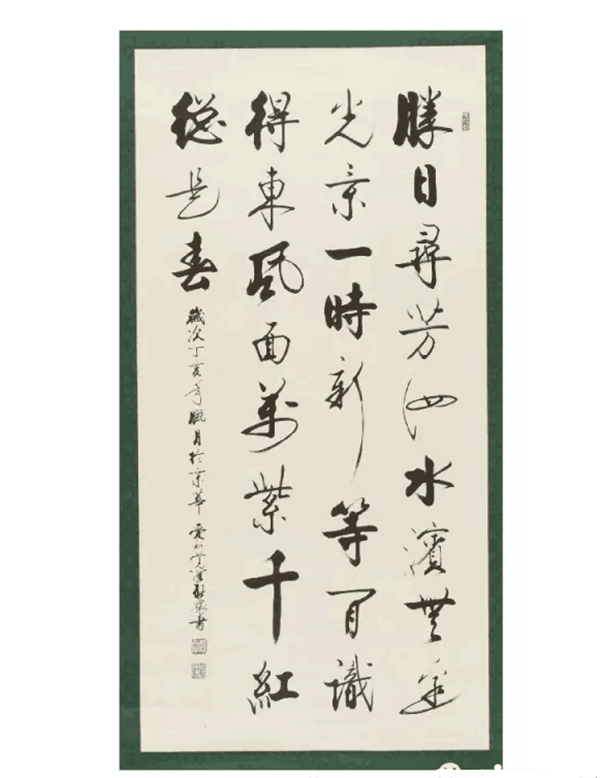 勝日尋芳泗水濱無邊
光景一時新等閒識
得東風面萬紫千紅
總是春
歲次丁亥年臘月於京華 愛新覺羅書